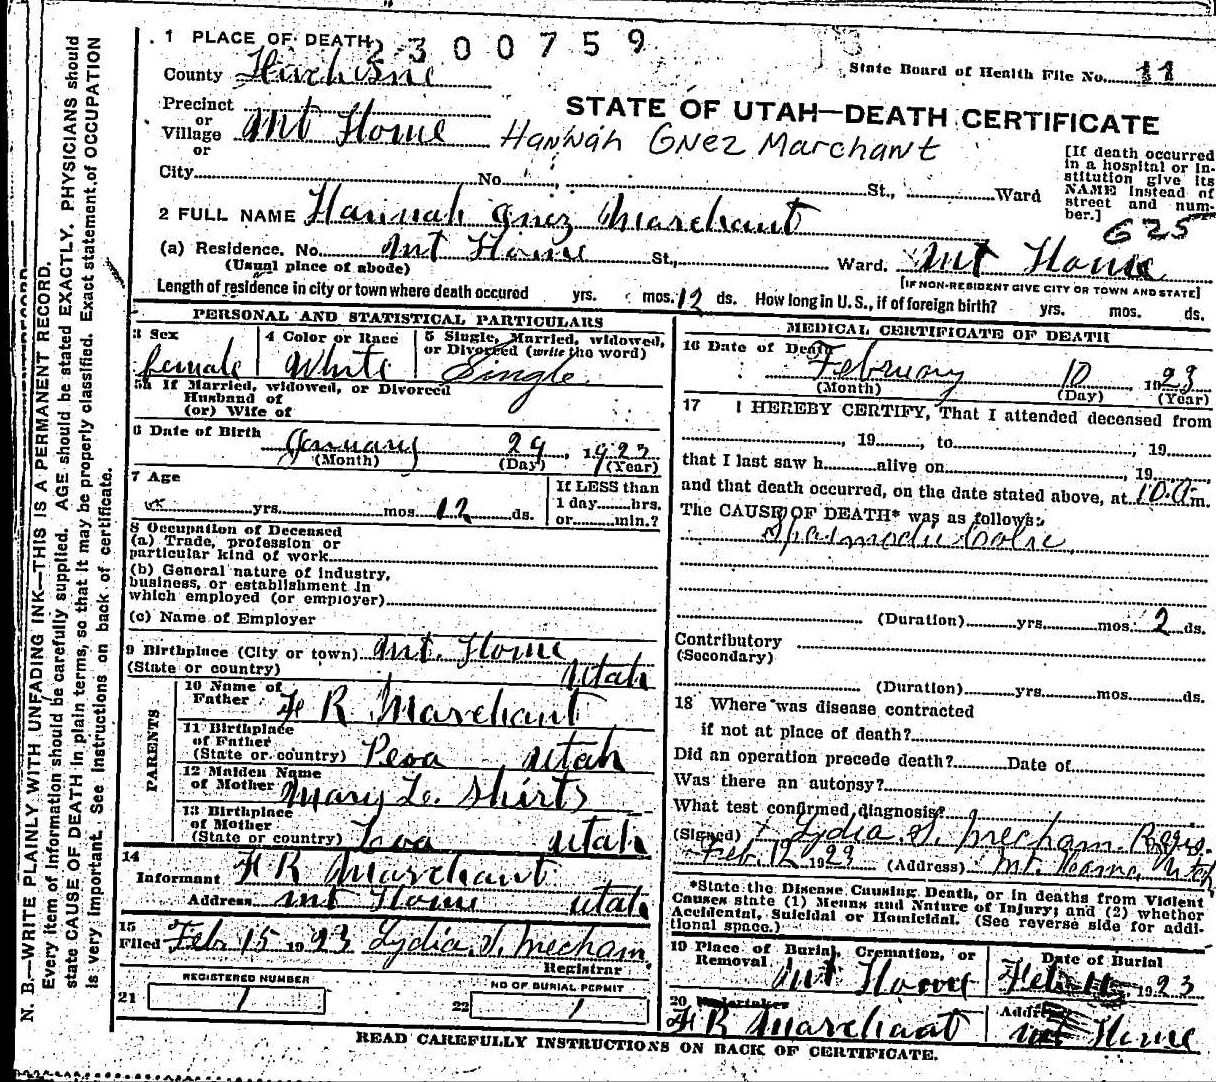 1 PLACE OF DEATH 2300759
State Board of Health File No. 11
County Duchesne
STATE OF UTAH—DEATH CERTIFICATE
Precinct
or
Village Mt Home
or
Hannah Gnez Marchant
[If death occurred
in a hospital or in-
stitution give its
NAME instead of
street and num-
ber.]
City No. St., Ward
625
2 FULL NAME Hannah Gnez Marchant
(a) Residence. No. Mt Home St., Ward. Mt Home
(Usual place of abode)
[IF NON-RESIDENT GIVE CITY OR TOWN AND STATE]
Length of residence in city or town where death occured yrs. mos. 12 ds. How long in U. S., if of foreign birth? yrs. mos. ds.
PERSONAL AND STATISTICAL PARTICULARS
3 Sex
female
4 Color or Race
White
5 Single, Married, widowed,
or Divorced (write the word)
Single
5a If Married, widowed, or Divorced
Husband of
(or) Wife of
6 Date of Birth
January 29, 1923
(Month) (Day) (Year)
7 Age
yrs. mos. 12 ds.
If LESS than
1 day hrs.
or min.?
8 Occupation of Deceased
(a) Trade, profession or
particular kind of work
(b) General nature of industry,
business, or establishment in
which employed (or employer)
(c) Name of Employer
9 Birthplace (City or town) Mt. Home
(State or country) Utah
PARENTS
10 Name of
Father F R Marchant
11 Birthplace
of Father
(State or country) Peoa Utah
12 Maiden Name
of Mother Mary Le. Shirts
13 Birthplace
of Mother
(State or country) Loa Utah
14
Informant F R Marchant
Address Mt Home Utah
15
Filed Feb 15 1923 Lydia S. Mecham
Registrar
REGISTERED NUMBER
21 1
NO OF BURIAL PERMIT
22 1
MEDICAL CERTIFICATE OF DEATH
16 Date of Death
February 10, 1923
(Month) (Day) (Year)
17 I HEREBY CERTIFY, That I attended deceased from
, 19 , to , 19
that I last saw h alive on , 19
and that death occurred, on the date stated above, at 10 a.m.
The CAUSE OF DEATH* was as follows:
Spasmodic Colic
(Duration) yrs. mos. 2 ds.
Contributory
(Secondary)
(Duration) yrs. mos. ds.
18 Where was disease contracted
if not at place of death?
Did an operation precede death? Date of
Was there an autopsy?
What test confirmed diagnosis?
(Signed) Lydia S. Mecham Regis.
Feb. 12 1923 (Address) Mt. Home, Utah
*State the Disease Causing Death, or in deaths from Violent
Causes state (1) Means and Nature of Injury; and (2) whether
Accidental, Suicidal or Homicidal. (See reverse side for addi-
tional space.)
19 Place of Burial, Cremation, or
Removal Mt Home
Date of Burial
Feb 1923
20 Undertaker
F R Marchant
Address
Mt Home
READ CAREFULLY INSTRUCTIONS ON BACK OF CERTIFICATE.
N. B.—WRITE PLAINLY WITH UNFADING INK—THIS IS A PERMANENT RECORD.
Every item of information should be carefully supplied. AGE should be stated EXACTLY. PHYSICIANS should
state CAUSE OF DEATH in plain terms, so that it may be properly classified. Exact statement of OCCUPATION
is very important. See instructions on back of certificate.